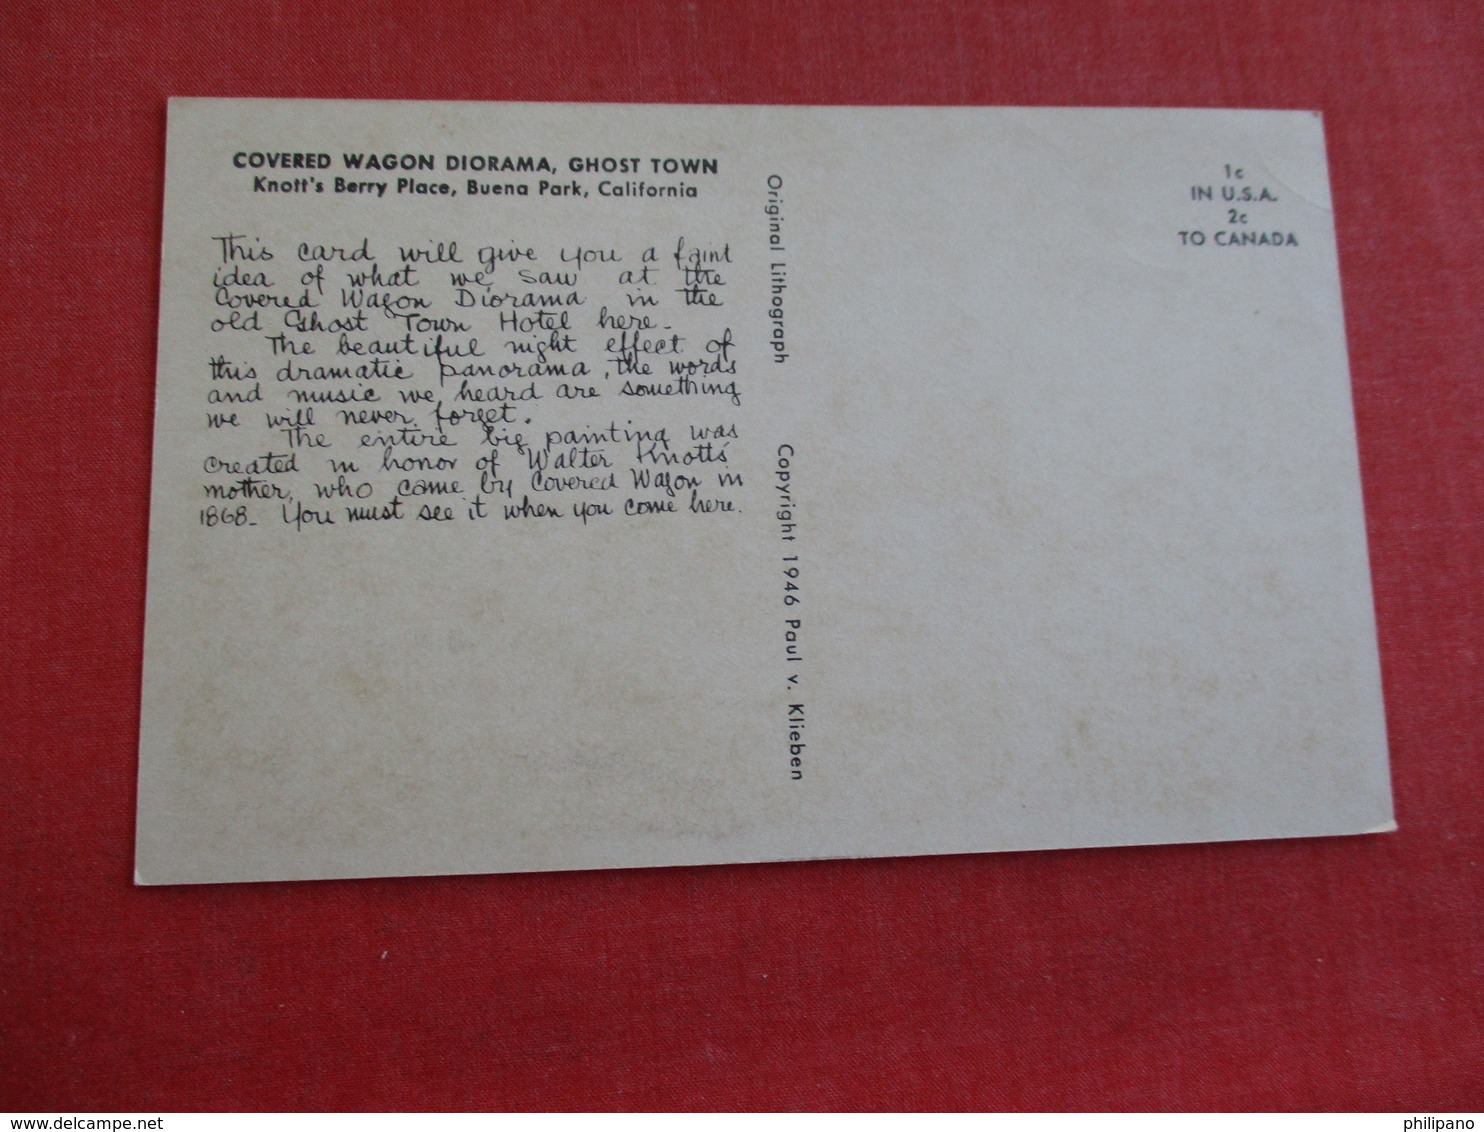 COVERED WAGON DIORAMA, GHOST TOWN
Knott's Berry Place, Buena Park, California
This card will give you a faint
idea of what we saw at the
Covered Wagon Diorama in the
old Ghost Town Hotel here.
The beautiful night effect of
this dramatic panorama, the words
and music we heard are something
we will never forget.
The entire big painting was
created in honor of Walter Knott's
mother, who came by Covered Wagon in
1868. You must see it when you come here.
Original Lithograph
Copyright 1946 Paul v. Klieben
1c
IN U.S.A.
2c
TO CANADA
www.delcampe.net
philipano